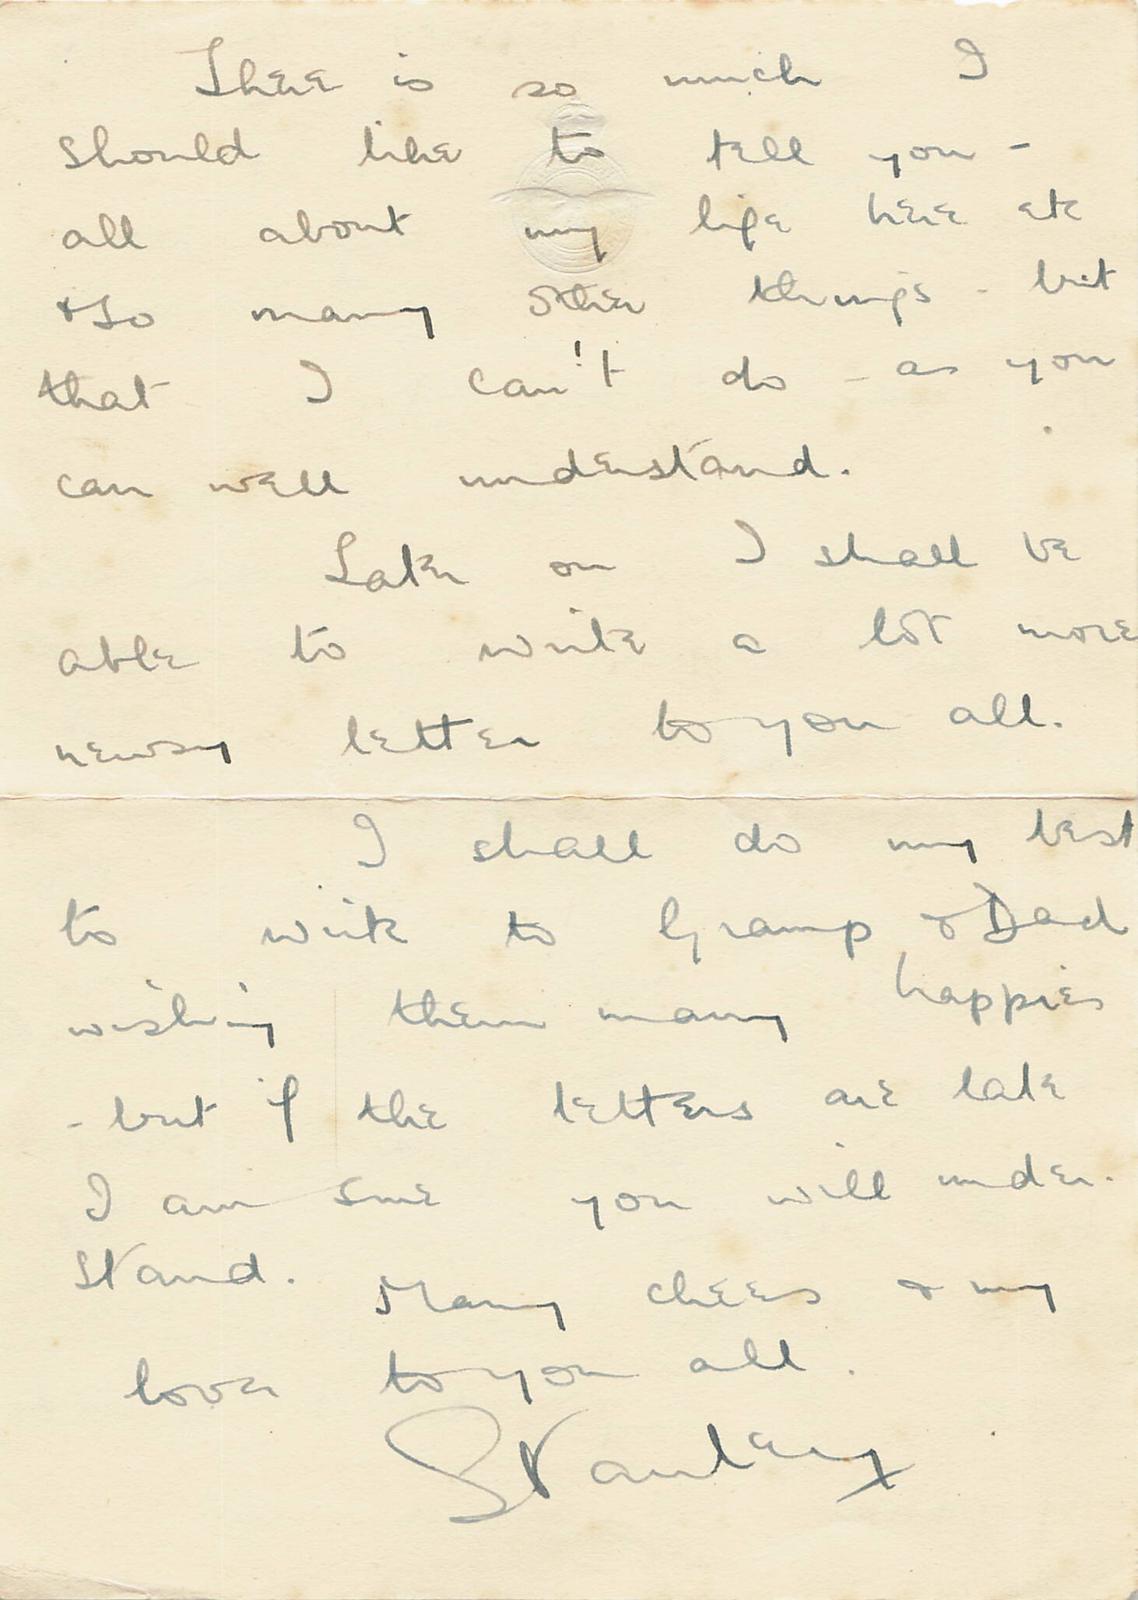 There is so much I
should like to tell you -
all about my life here etc
+ so many other things - but
that I can't do - as you
can well understand.
Later on I shall be
able to write a lot more
newsy letter to you all.
I shall do my best
to write to Gramp & Dad
wishing them many happies
- but if the letters are late
I am sure you will under-
stand. Many cheers & my
love to you all.
Stanley